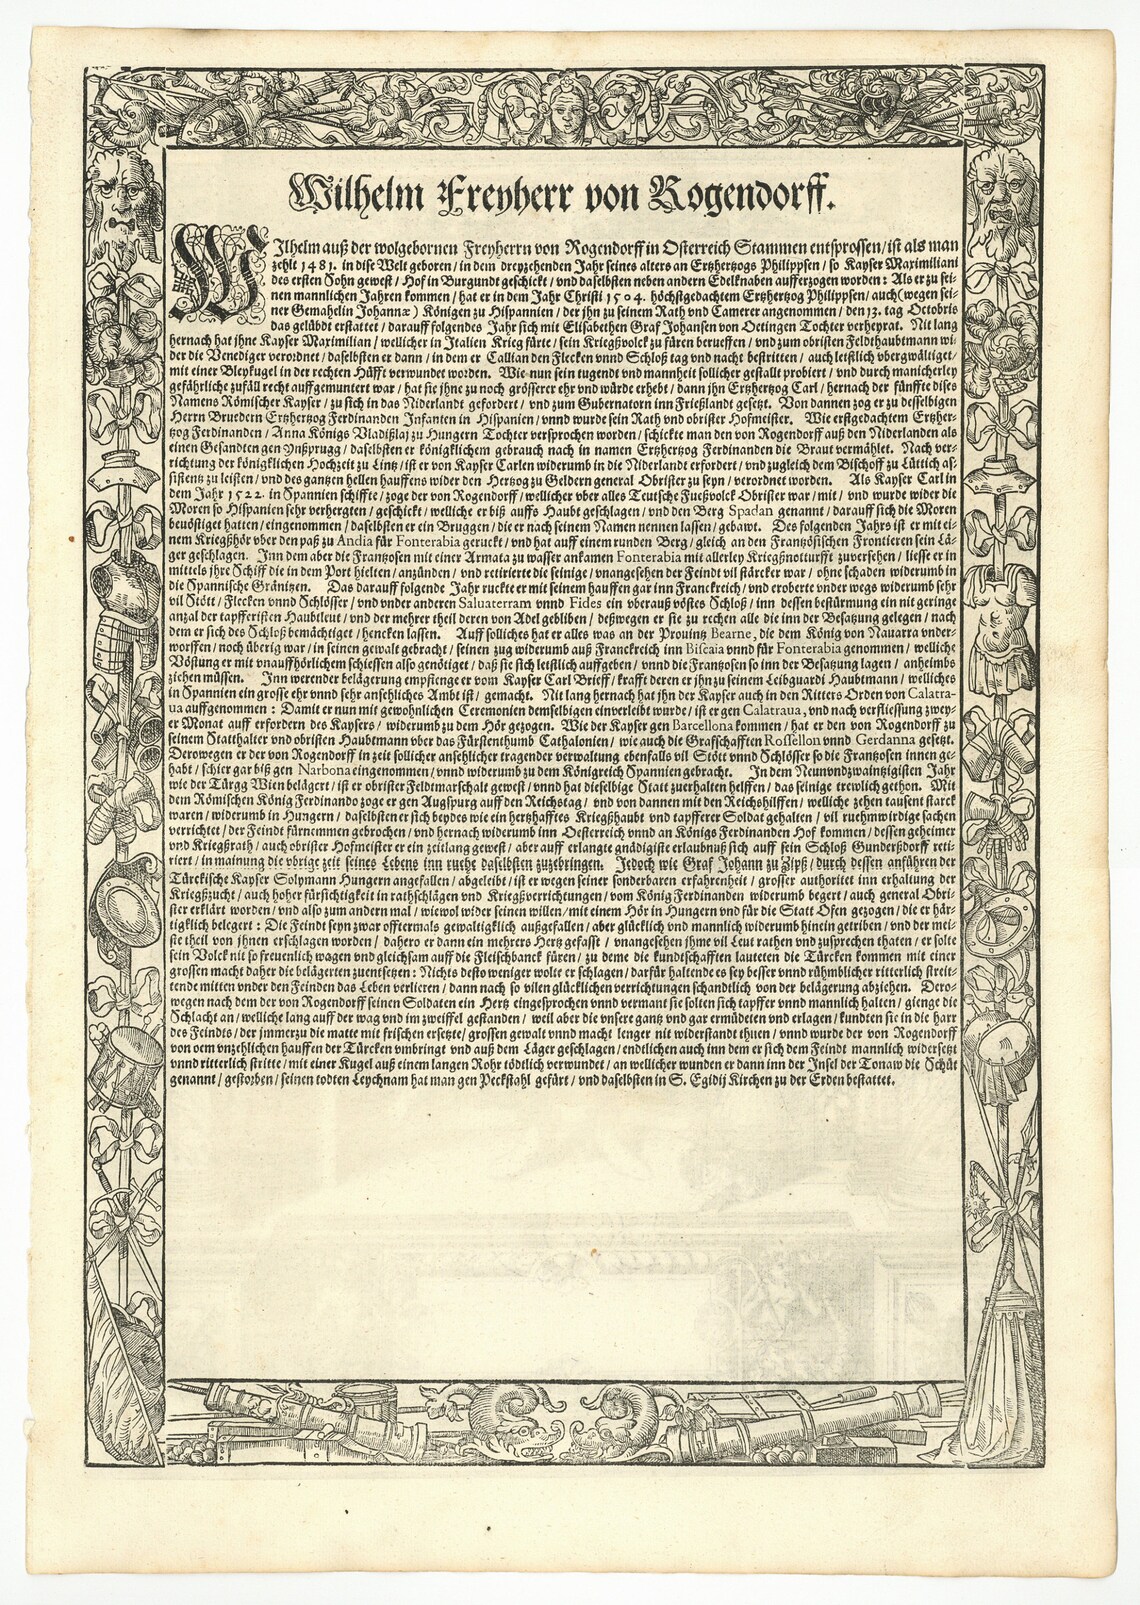 Wilhelm Freyherr von Rogendorff.
WIlhelm auß der wolgebornen Freyherrn von Rogendorff in Osterreich Stammen entsprossen / ist als man
zehlt 1481. in dise Welt geboren / in dem dreyzehenden Jahr seines alters an Ertzhertzogs Philippsen / so Kayser Maximiliani
des ersten Sohn gewest / Hof in Burgundt geschickt / vnd daselbsten neben andern Edelknaben aufferzogen worden : Als er zu sei-
nen mannlichen Jahren kommen / hat er in dem Jahr Christi 1504. höchstgedachtem Ertzhertzog Philippsen / auch (wegen sei-
ner Gemahelin Johannæ) Königen zu Hispannien / der jhn zu seinem Rath vnd Camerer angenommen / den 13. tag Octobris
das gelübdt erstattet / darauff folgendes Jahr sich mit Elisabethen Graf Johansen von Oetingen Tochter verheyrat. Nit lang
hernach hat jhne Kayser Maximilian / wellicher in Italien Krieg fürte / sein Kriegßvolck zu füren berueffen / vnd zum obristen Feldthaubtmann wi-
der die Venediger verordnet / daselbsten er dann / in dem er Callian den Flecken vnnd Schloß tag vnd nacht bestritten / auch leistlich vbergwältiget /
mit einer Bleykugel in der rechten Hüfft verwundet worden. Wie nun sein tugendt vnd mannheit sollicher gestallt probiert / vnd durch manicherley
gefährliche zufäll recht auffgemuntert war / hat sie jhne zu noch grösserer ehr vnd würde erhebt / dann jhn Ertzhertzog Carl / hernach der fünffte dises
Namens Römischer Kayser / zu sich in das Niderlandt gefordert / vnd zum Gubernatorn inn Frießlandt gesetzt. Von dannen zog er zu desselbigen
Herrn Bruedern Ertzhertzog Ferdinanden Infanten in Hispanien / vnnd wurde sein Rath vnd obrister Hofmeister. Wie erstgedachtem Ertzher-
tzog Ferdinanden / Anna Königs Vladißlaj zu Hungern Tochter versprochen worden / schickte man den von Rogendorff auß den Niderlanden als
einen Gesandten gen Ynßprugg / daselbsten er königlichem gebrauch nach in namen Ertzhertzog Ferdinanden die Braut vermählet. Nach ver-
richtung der königlichen Hochzeit zu Lintz / ist er von Kayser Carlen widerumb in die Niderlandt erfordert / vnd zugleich dem Bischoff zu Lüttich as-
sistentz zu leisten / vnd des gantzen hellen hauffens wider den Hertzog zu Geldern general Obrister zu seyn / verordnet worden. Als Kayser Carl in
dem Jahr 1522. in Spannien schiffte / zoge der von Rogendorff / wellicher vber alles Teutsche Fueßvolck Obrister war / mit / vnd wurde wider die
Moren so Hispanien sehr verhergten / geschickt / welliche er biß auffs Haubt geschlagen / vnd den Berg Spadan genannt / darauff sich die Moren
beuöstiget hatten / eingenommen / daselbsten er ein Bruggen / die er nach seinem Namen nennen lassen / gebawt. Des folgenden Jahrs ist er mit ei-
nem Kriegßhör vber den paß zu Andia für Fonterabia geruckt / vnd hat auff einem runden Berg / gleich an den Frantzösischen Frontieren sein Lä-
ger geschlagen. Inn dem aber die Frantzosen mit einer Armata zu wasser ankamen Fonterabia mit allerley Kriegßnotturfft zuversehen / liesse er in
mittels jhre Schiff die in dem Port hielten / anzünden / vnd retirierte die seinige / vnangesehen der Feindt vil stärcker war / ohne schaden widerumb in
die Spannische Gräntzen. Das darauff folgende Jahr ruckte er mit seinem hauffen gar inn Franckreich / vnd eroberte vnder wegs widerumb sehr
vil Stött / Flecken vnnd Schlösser / vnd vnder anderen Saluaterram vnnd Fides ein vberauß vöstes Schloß / inn dessen bestürmung ein nit geringe
anzal der tapfferisten Haubtleut / vnd der mehrer theil deren von Adel gebliben / deßwegen er sie zu rechen alle die inn der Besatzung gelegen / nach
dem er sich des Schloß bemächtiget / hencken lassen. Auff solliches hat er alles was an der Prouintz Bearne, die dem König von Nauarra vnder-
worffen / noch überig war / in seinen gewalt gebracht / seinen zug widerumb auß Franckreich inn Biscaia vnnd für Fonterabia genommen / welliche
Vöstung er mit vnauffhörlichem schiessen also genötiget / daß sie sich leistlich auffgeben / vnnd die Frantzosen so inn der Besatzung lagen / anheimbs
ziehen müssen. Inn werender belägerung empfienge er vom Kayser Carl Brieff / krafft deren er jhn zu seinem Leibguardi Haubtmann / welliches
in Spannien ein grosse ehr vnnd sehr ansehliches Ambt ist / gemacht. Nit lang hernach hat jhn der Kayser auch in den Ritters Orden von Calatra-
ua auffgenommen : Damit er nun mit gewohnlichen Ceremonien demselbigen einverleibt wurde / ist er gen Calatraua, vnd nach verfliessung zwey-
er Monat auff erfordern des Kaysers / widerumb zu dem Hör gezogen. Wie der Kayser gen Barcellona kommen / hat er den von Rogendorff zu
seinem Statthalter vnd obristen Haubtmann vber das Fürstenthumb Cathalonien / wie auch die Grafschafften Rossellon vnnd Gerdanna gesetzt.
Derowegen er der von Rogendorff in zeit sollicher ansehlicher tragender verwaltung ebenfalls vil Stött vnnd Schlösser so die Frantzosen innen ge-
habt / schier gar biß gen Narbona eingenommen / vnnd widerumb zu dem Königreich Spannien gebracht. In dem Neunvndzwaintzigisten Jahr
wie der Türgg Wien belägert / ist er obrister Feldtmarschalt gewest / vnnd hat dieselbige Statt zuerhalten helffen / das seinige trewlich gethon. Mit
dem Römischen König Ferdinando zoge er gen Augspurg auff den Reichstag / vnd von dannen mit den Reichshilffen / welliche zehen tausent starck
waren / widerumb in Hungern / daselbsten er sich beydes wie ein hertzhafftes Kriegßhaubt vnd tapfferer Soldat gehalten / vil ruehmwirdige sachen
verrichtet / der Feindt fürnemmen gebrochen / vnd hernach widerumb inn Oesterreich vnnd an Königs Ferdinanden Hof kommen / dessen geheimer
vnd Kriegßrath / auch obrister Hofmeister er ein zeitlang gewest / aber auff erlangte gnädigiste erlaubnuß sich auff sein Schloß Gunderßdorff reti-
riert / in mainung die vbrige zeit seines Lebens inn ruehe daselbsten zuzebringen. Jedoch wie Graf Johann zu Zipß / durch dessen anführen der
Türckische Kayser Solymann Hungern angefallen / abgeleibt / ist er wegen seiner sonderbaren erfahrenheit / grosser authoritet inn erhaltung der
Kriegßzucht / auch hoher fürsichtigkeit in rathschlägen vnd Kriegßverrichtungen / vom König Ferdinanden widerumb begert / auch general Obri-
ster erklärt worden / vnd also zum andern mal / wiewol wider seinen willen / mit einem Hör in Hungern vnd für die Statt Ofen gezogen / die er här-
tigklich belegert : Die Feindt seyn zwar offtermals gewaltigklich außgefallen / aber glücklich vnd mannlich widerumb hinein getriben / vnd der mei-
ste theil von jhnen erschlagen worden / dahero er dann ein mehrers Hertz gefasst / vnangesehen jhme vil Leut rathen vnd zusprechen thaten / er solte
sein Volck nit so freuenlich wagen vnd gleichsam auff die Fleischbanck füren / zu deme die kundtschafften lauteten die Türcken kommen mit einer
grossen macht daher die belägerten zuentsetzen : Nichts desto weniger wolte er schlagen / darfür haltende es sey besser vnnd rühmblicher ritterlich streit-
tende mitten vnder den Feinden das Leben verlieren / dann nach so vilen glücklichen verrichtungen schandtlich von der belägerung abziehen. Dero-
wegen nach dem der von Rogendorff seinen Soldaten ein Hertz eingesprochen vnnd vermant sie solten sich tapffer vnnd mannlich halten / gienge die
Schlacht an / welliche lang auff der wag vnd im zweiffel gestanden / weil aber die vnsere gantz vnd gar ermüdeten vnd erlagen / kundten sie in die harr
des Feindts / der jmmerzu die matte mit frischen ersetzte / grossen gewalt vnnd macht lenger nit widerstandt thuen / vnnd wurde der von Rogendorff
von dem vnzehlichen hauffen der Türcken vmbringt vnd auß dem Läger geschlagen / endtlichen auch inn dem er sich dem Feindt mannlich widersetzt
vnnd ritterlich stritte / mit einer Kugel auß einem langen Rohr tödtlich verwundet / an wellicher wunden er dann inn der Insel der Tonaw die Schüt
genannt / gestorben / seinen todten Leychnam hat man gen Peckstahl gefürt / vnd daselbsten in S. Egidij Kirchen zu der Erden bestattet.